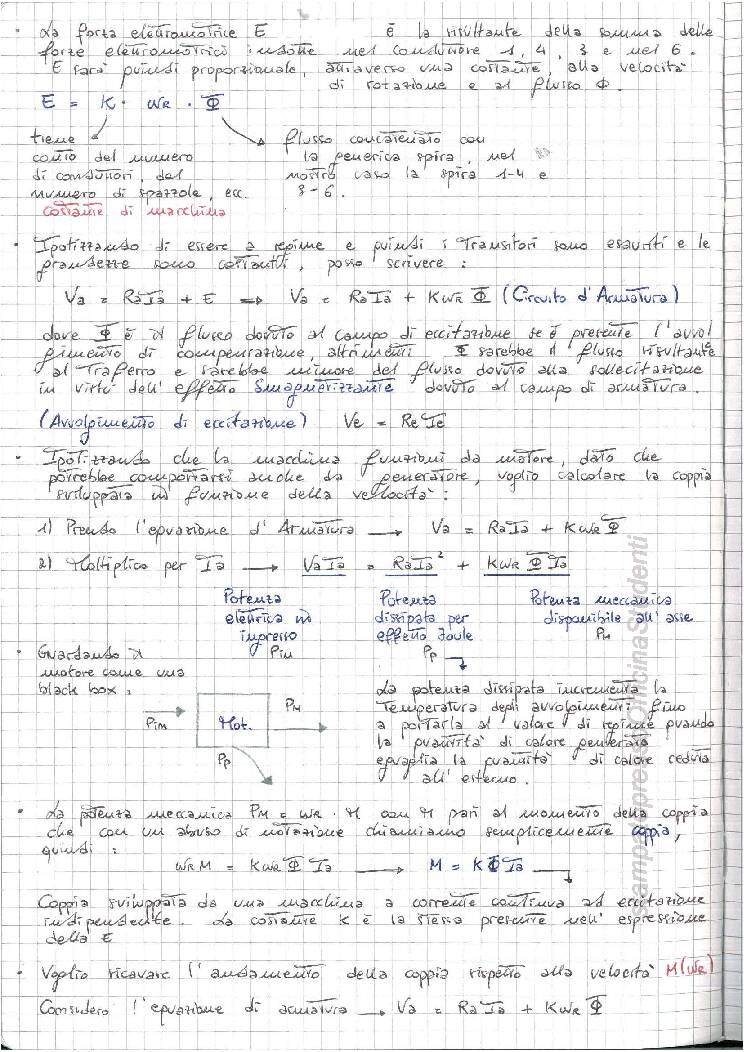 · La forza elettromotrice E è la risultante della somma delle
forze elettromotrici indotte nel conduttore 1, 4, 3 e nel 6.
E sarà quindi proporzionale, attraverso una costante, alla velocità
di rotazione e al flusso Φ.
E = K · ωR · Φ
tiene
conto del numero
di conduttori, del
numero di spazzole, ecc.
costante di macchina
flusso concatenato con
la generica spira, nel
nostro caso la spira 1-4 e
3-6.
· Ipotizzando di essere a regime e quindi i transitori sono esauriti e le
grandezze sono costanti, posso scrivere:
Va = RaIa + E → Va = RaIa + KωR Φ (Circuito d'Armatura)
dove Φ è il flusso dovuto al campo di eccitazione se è presente l'avvol
gimento di compensazione, altrimenti Φ sarebbe il flusso risultante
al traferro e sarebbe minore del flusso dovuto alla sollecitazione
in virtù dell'effetto smagnetizzante dovuto al campo di armatura.
(Avvolgimento di eccitazione) Ve = ReIe
· Ipotizzando che la macchina funzioni da motore, dato che
potrebbe comportarsi anche da generatore, voglio calcolare la coppia
sviluppata in funzione della velocità:
1) Prendo l'equazione d'Armatura → Va = RaIa + KωR Φ
2) Moltiplico per Ia → VaIa = RaIa² + KωR Φ Ia
Potenza
elettrica in
ingresso
Pin
Potenza
dissipata per
effetto Joule
Pp
Potenza meccanica
disponibile all'asse
PM
· Guardando il
motore come una
black box:
Pin
Mot.
PM
Pp
La potenza dissipata incrementa la
temperatura degli avvolgimenti fino
a portarla al valore di regime quando
la quantità di calore generata
eguaglia la quantità di calore ceduta
all'esterno.
· La potenza meccanica PM = ωR · M con M pari al momento della coppia
che con un abuso di notazione chiamiamo semplicemente coppia,
quindi:
ωR M = KωR Φ Ia → M = KΦIa
Coppia sviluppata da una macchina a corrente continua ad eccitazione
indipendente. La costante K è la stessa presente nell'espressione
della E
· Voglio ricavare l'andamento della coppia rispetto alla velocità M(ωR)
Considero l'equazione di armatura → Va = RaIa + KωR Φ